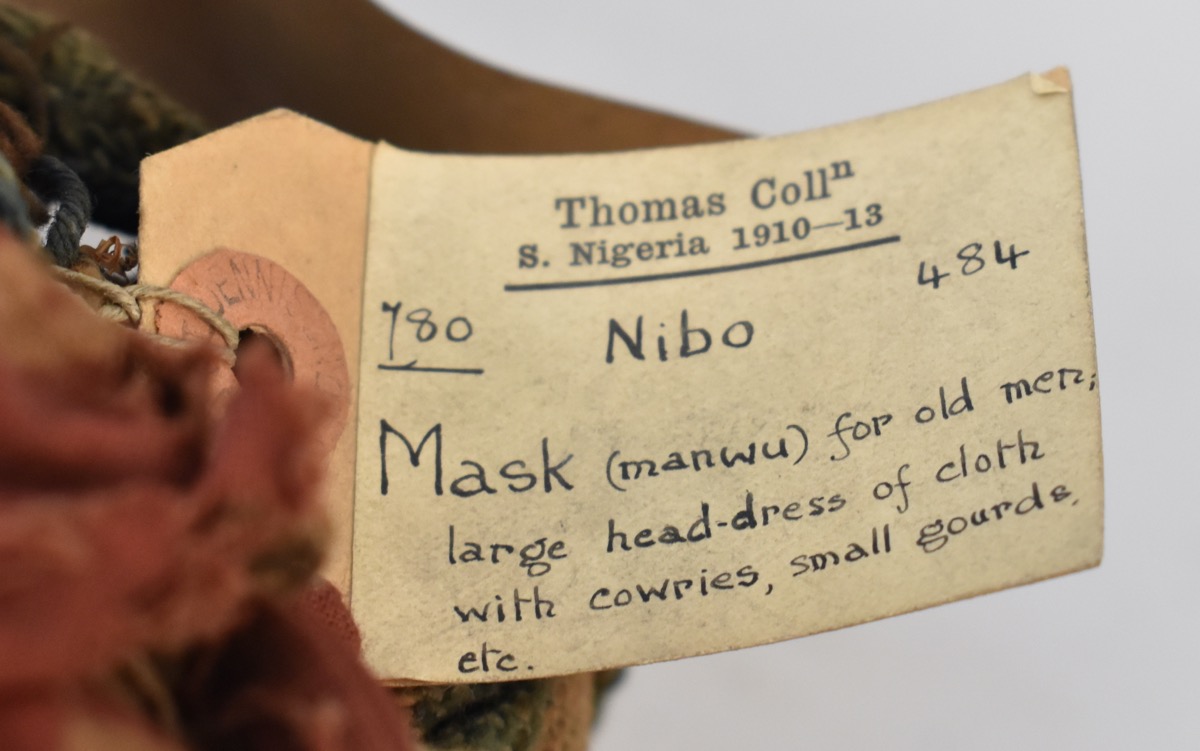 Thomas Collⁿ
S. Nigeria 1910—13
484
780 Nibo
Mask (manwu) for old men;
large head-dress of cloth
with cowries, small gourds.
etc.